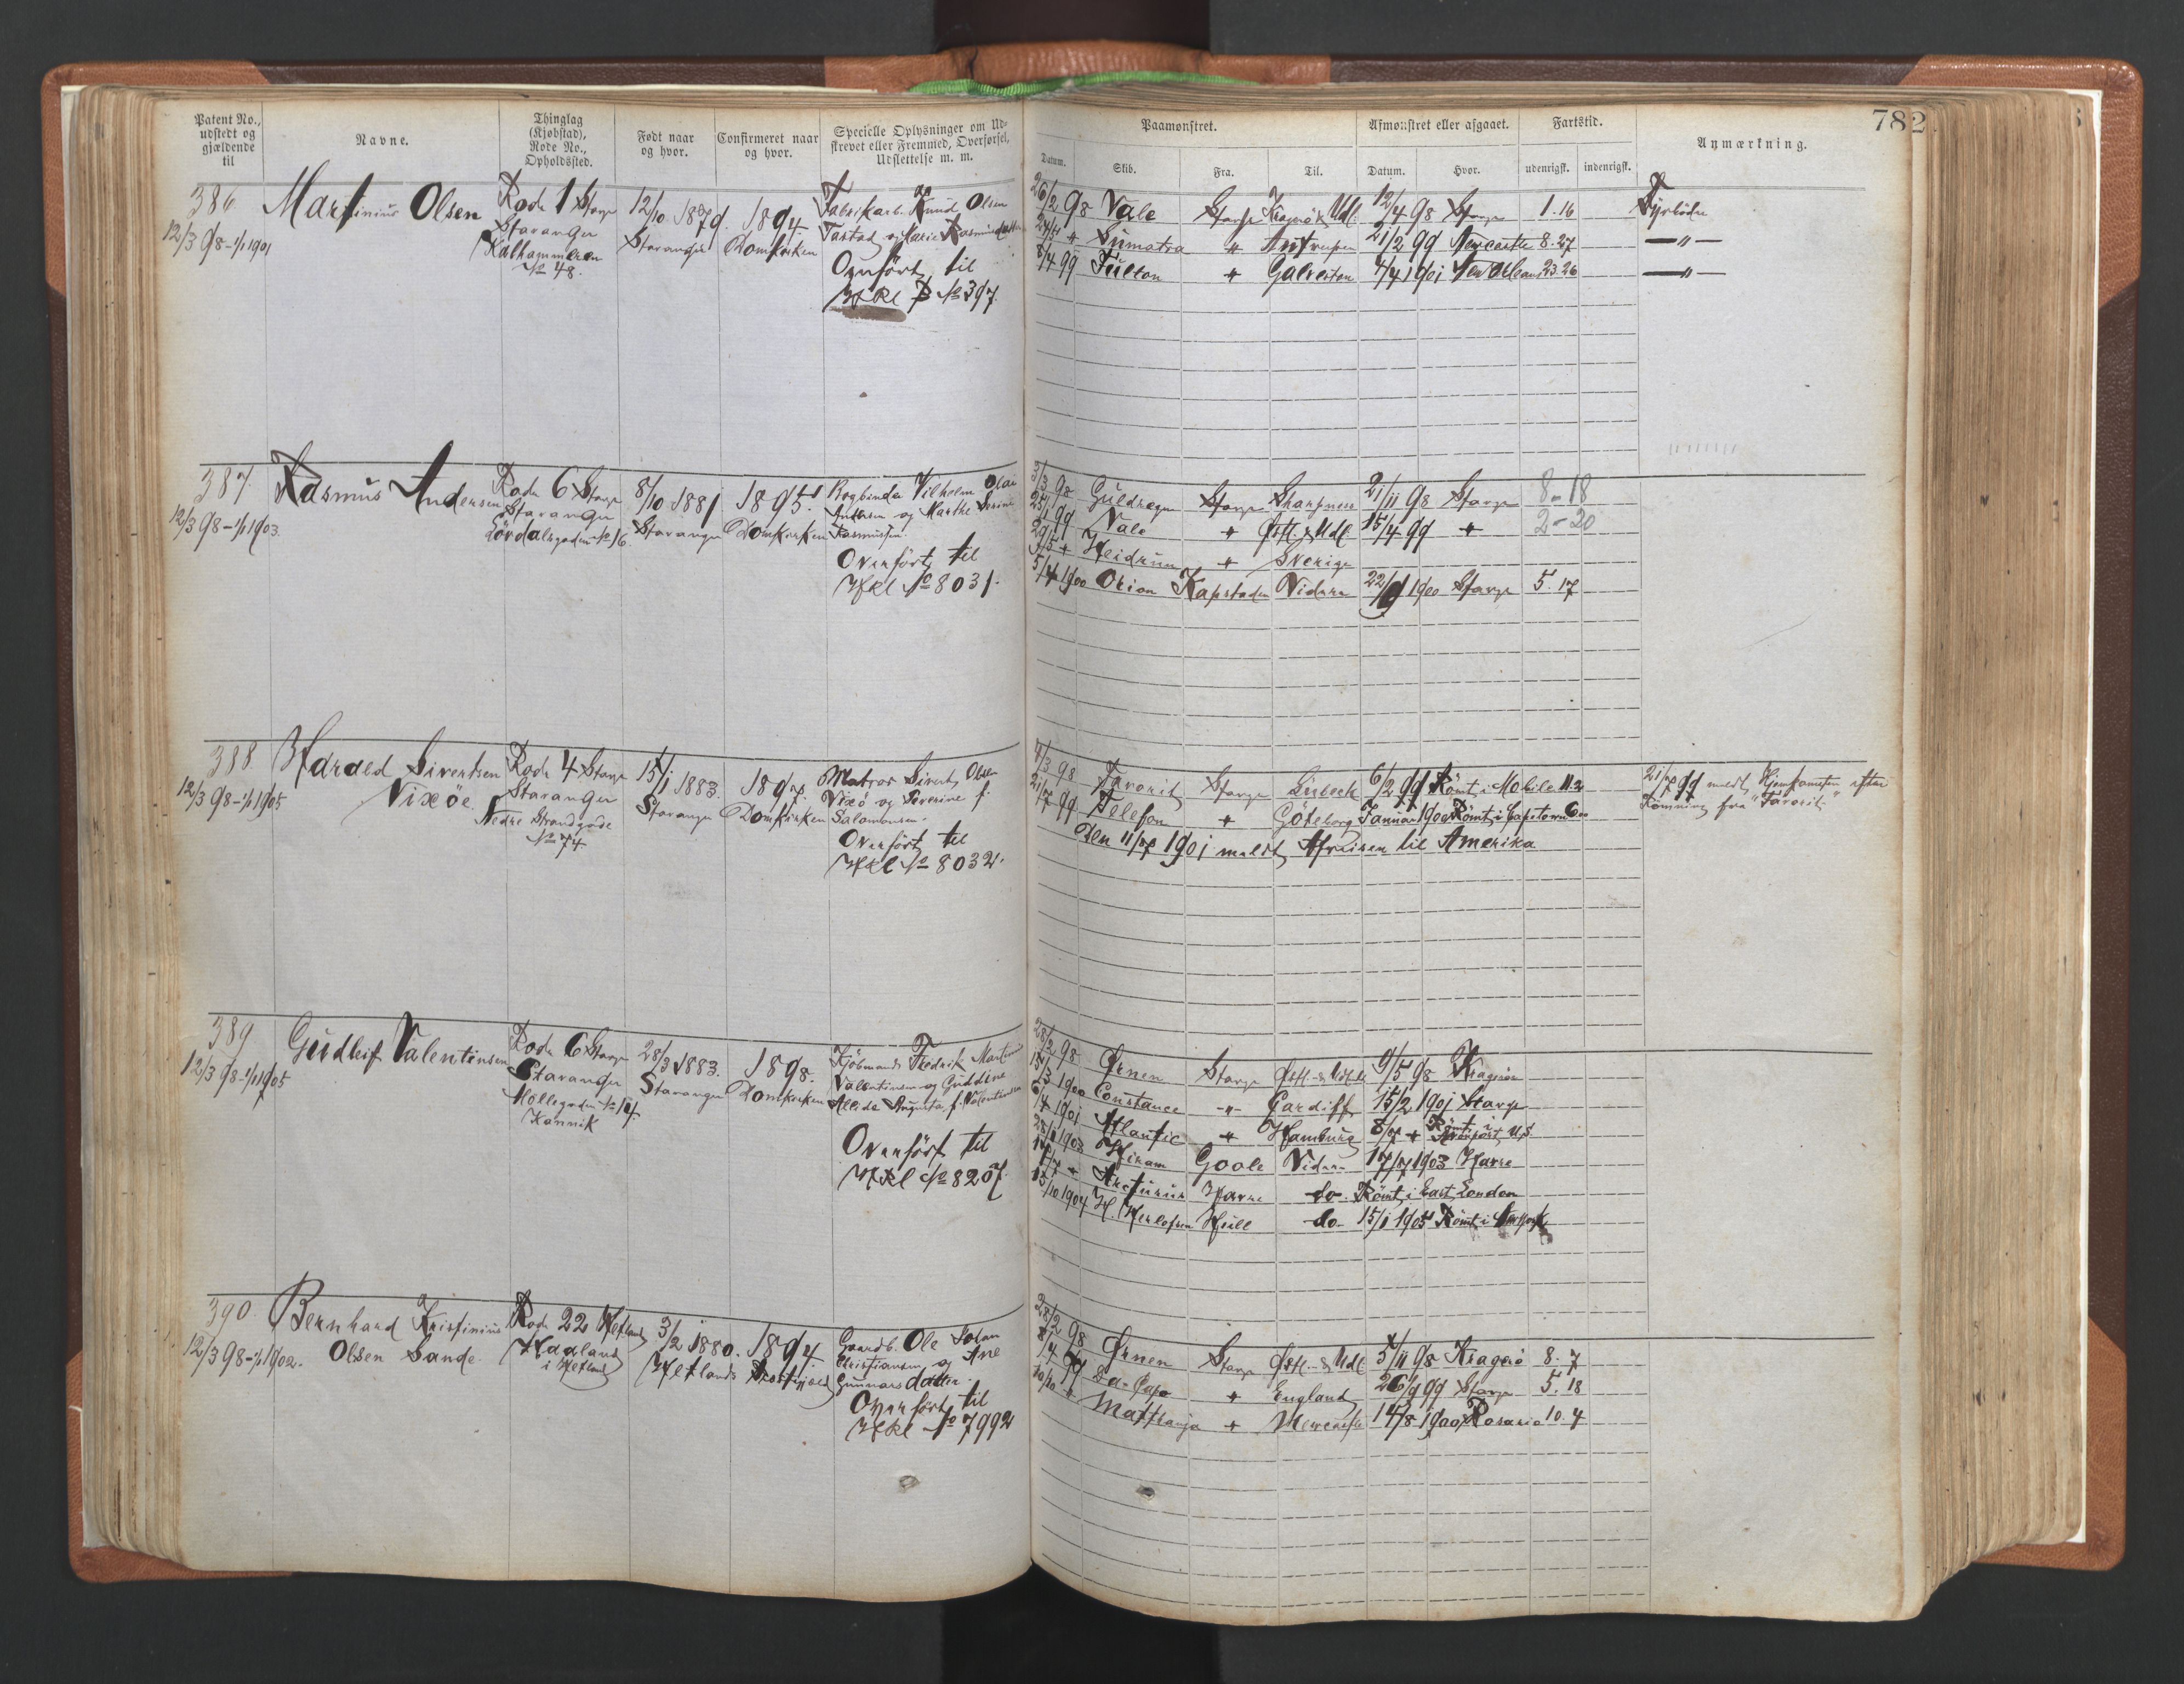 Patent No.,
udstedt og
gjældende
til
Navne.
Thinglag
(Kjøbstad),
Rode No.,
Opholdssted.
Født naar
og hvor.
Confirmeret naar
og hvor.
Specielle Oplysninger om Ud-
skrevet eller Fremmed, Overførsel,
Udslettelse m. m.
386
12/3 98 - 1/1 1901
Martinius Olsen
Rode 1 Stavgr
Stavanger
Kalhammeren
No 48.
12/10 1879.
Stavanger
1894.
Domkirken
Fabrikarb. Knud Olsen
Tastad og Marie
Overført til
Hkl No 397.
387.
12/3 98 - 1/1 1903.
Rasmus Andersen
Rode 6 Stavgr
Stavanger
Lövdalsgaden No 16.
8/10 1881
Stavanger
1895.
Domkirken
Bogbinder Vilhelm Olai
Andersen og Marthe Serine
Rasmussen.
Overført til
Hkl No 8031.
388
12/3 98 - 1/1 1905
Harald Sivertsen
Vixöe.
Rode 4 Stavgr
Stavanger
Nedre Strandgade
No 74
15/1 1883.
Stavanger
1897.
Domkirken
Matros Sivert Olsen
Vixö og Severine f.
Salomonsen.
Overført til
Hkl No 8032.
389
12/3 98 - 1/1 1905
Gudleif Valentinsen
Rode 6 Stavgr
Stavanger
Möllegaden No 107.
Kannik
28/3 1883.
Stavanger
1898.
Domkirken
Kjöbmand Fredrik Martin
Valentinsen og Guddine
Allida Augusta f. Valentinsen
Overført til
Hkl No 8207.
390.
12/3 98 - 1/1 1902.
Bernhard Kristinius
Olsen Sande.
Rode 22 Hetland
Haaland
i Hetland
3/2 1880.
Hetlands
1894.
Gaardb. Ole Johan
Christiansen og Ane
Gunnarsdatter.
Overført til
Hkl No 7992
782
Paamønstret.
Afmønstret eller afgaaet.
Fartstid.
Anmærkning.
Datum.
Skib.
Fra.
Til.
Datum.
Hvor.
udenrigsk.
indenrigsk.
26/2 98 Vale Stavgr Kragerö & Udl. 12/4 98 Stavgr 1. 16 Fyrböder
" Sumatra " Antverpen 21/2 99 Newcastle 8. 27 — " —
8/4 99 Fulton " Galveston 4/4 1901 New Orleans 23. 26 — " —
3/3 98 Guldregn Stavgr Sharpness 21/11 98 Stavgr 8 - 18
25/1 99 Vale " Østl. & Udl 15/4 99 " 2 - 20
29/5 " Heidrun " Sverige
5/4 1900 Orion Kapstaden Videre 22/9 1900 Stavgr 5. 17
4/3 98 Favorit Stavgr Lisbeck 6/2 99 Römt i Mobile 11. 2 21/7 99 meldt Hjemkomsten efter
Römning fra "Favorit"
21/7 99 Telefon " Göteborg Januar 1900 Römt i Capetown 6
Den 11/7 1901 meldt Afreisen til Amerika
28/2 98 Ørnen Stavgr Østl. & Udl. 9/5 98 Kragerö
1900 Constance - " - Cardiff 15/2 1901 Stavgr
1901 Atlantic " Hamburg 8/7 " Römt
1903 Hiram Goole Videre 17/7 1903 Havre
" Arcturus Havre do. Römt i East London
15/10 1904 H. Herlofsen Hull do 15/1 1905 Römt i New York
28/2 98 Ørnen Stavgr Østl. & Udl 5/11 98 Kragerö 8. 7
8/4 99 Da-Capo " England 26/9 99 Stavgr 5. 18
10/10 " Mafhanja " Newcastle 14/8 1900 Rosario 10. 4